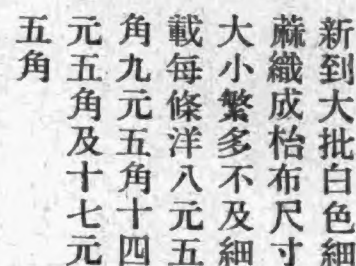 新到大批白色細
蔴織成枱布尺寸
大小繁多不及細
載每條洋八元五
角九元五角十四
元五角及十七元
五角